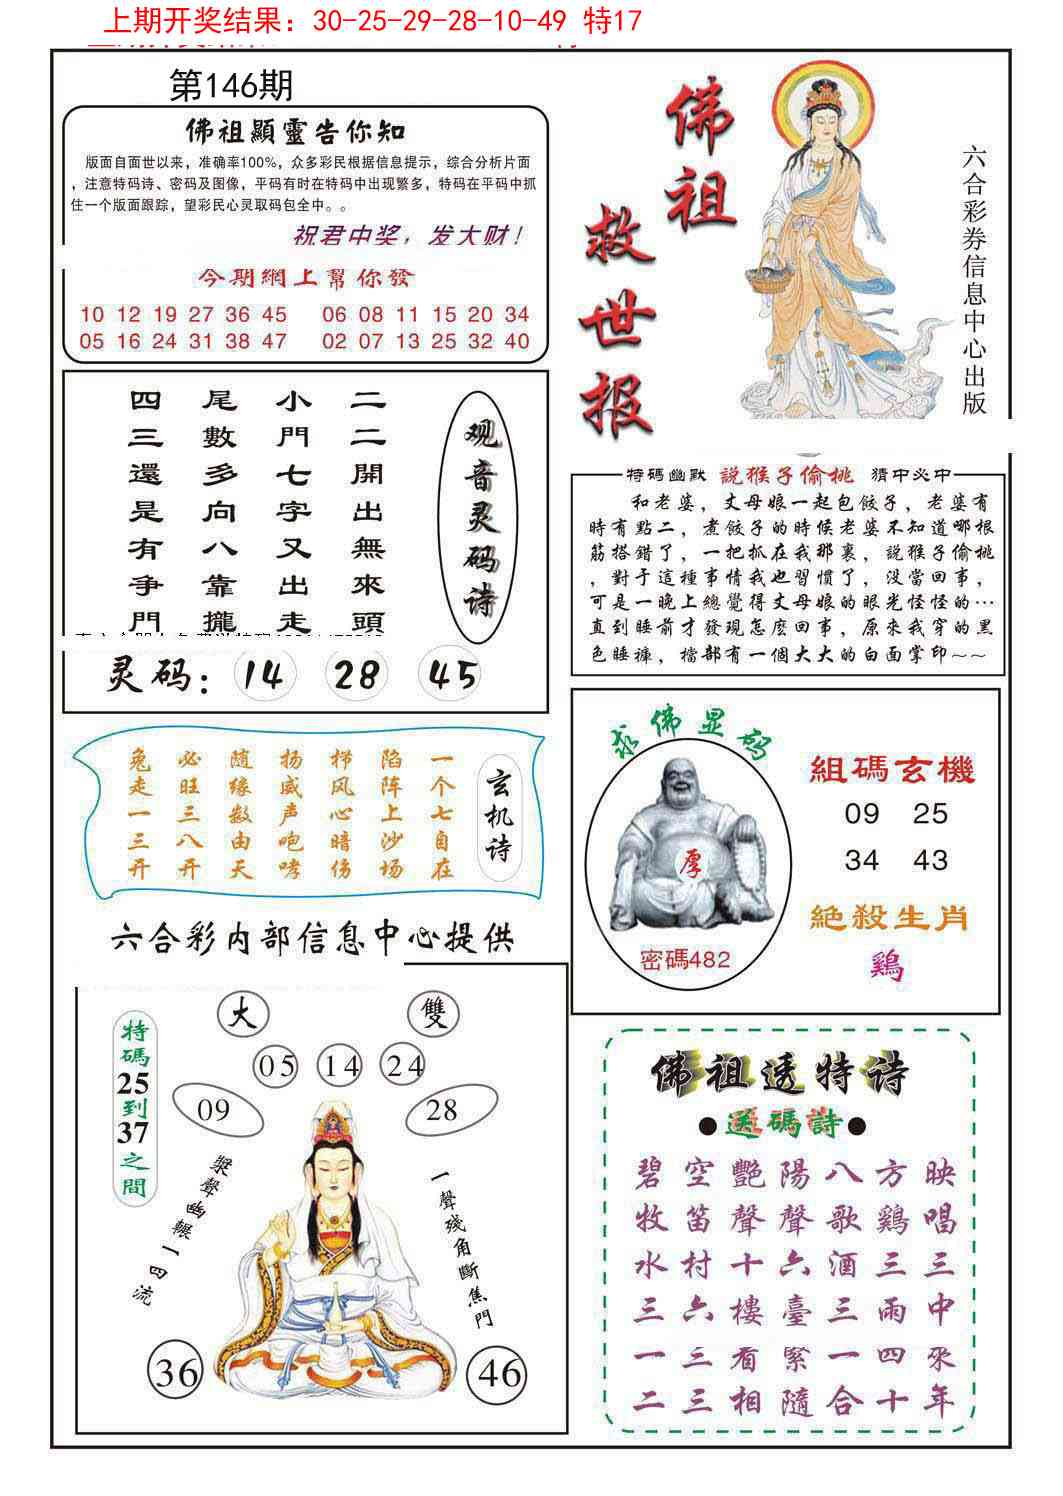 上期开奖结果：30-25-29-28-10-49 特17
第146期
佛祖顯靈告你知
版面自面世以来，准确率100%，众多彩民根据信息提示，综合分析片面
，注意特码诗、密码及图像，平码有时在特码中出现繁多，特码在平码中抓
住一个版面跟踪，望彩民心灵取码包全中。。
祝君中奖，发大财！
今期網上幫你發
10 12 19 27 36 45 06 08 11 15 20 34
05 16 24 31 38 47 02 07 13 25 32 40
佛祖
救世报
六合彩券信息中心出版
观音灵码诗
二二開出無來頭
小門七字又出走
尾數多向八靠攏
四三還是有争門
灵码：14 28 45
特碼幽默 説猴子偷桃 猜中必中
和老婆，丈母娘一起包餃子，老婆有
時有點二，煮餃子的時候老婆不知道哪根
筋搭錯了，一把抓在我那裏，説猴子偷桃
，對于這種事情我也習慣了，没當回事，
可是一晚上總覺得丈母娘的眼光怪怪的…
直到睡前才發現怎麽回事，原來我穿的黑
色睡褲，檔部有一個大大的白面掌印~~
玄机诗
一个七自在
陷阵上沙场
梯风心暗伤
扬威声咆哮
随缘数由天
必旺三八开
兔走一三开
求佛显码
厚
密碼482
組碼玄機
09 25
34 43
絶殺生肖
鷄
六合彩内部信息中心提供
大 雙
05 14 24
09 28
特碼25到37之間
槳聲幽輾一四流
一聲殘角斷焦門
36 46
佛祖透特诗
●送碼詩●
碧空艷陽八方映
牧笛聲聲歌鷄唱
水村十六酒三三
三六樓臺三雨中
一三看緊一四來
二三相隨合十年